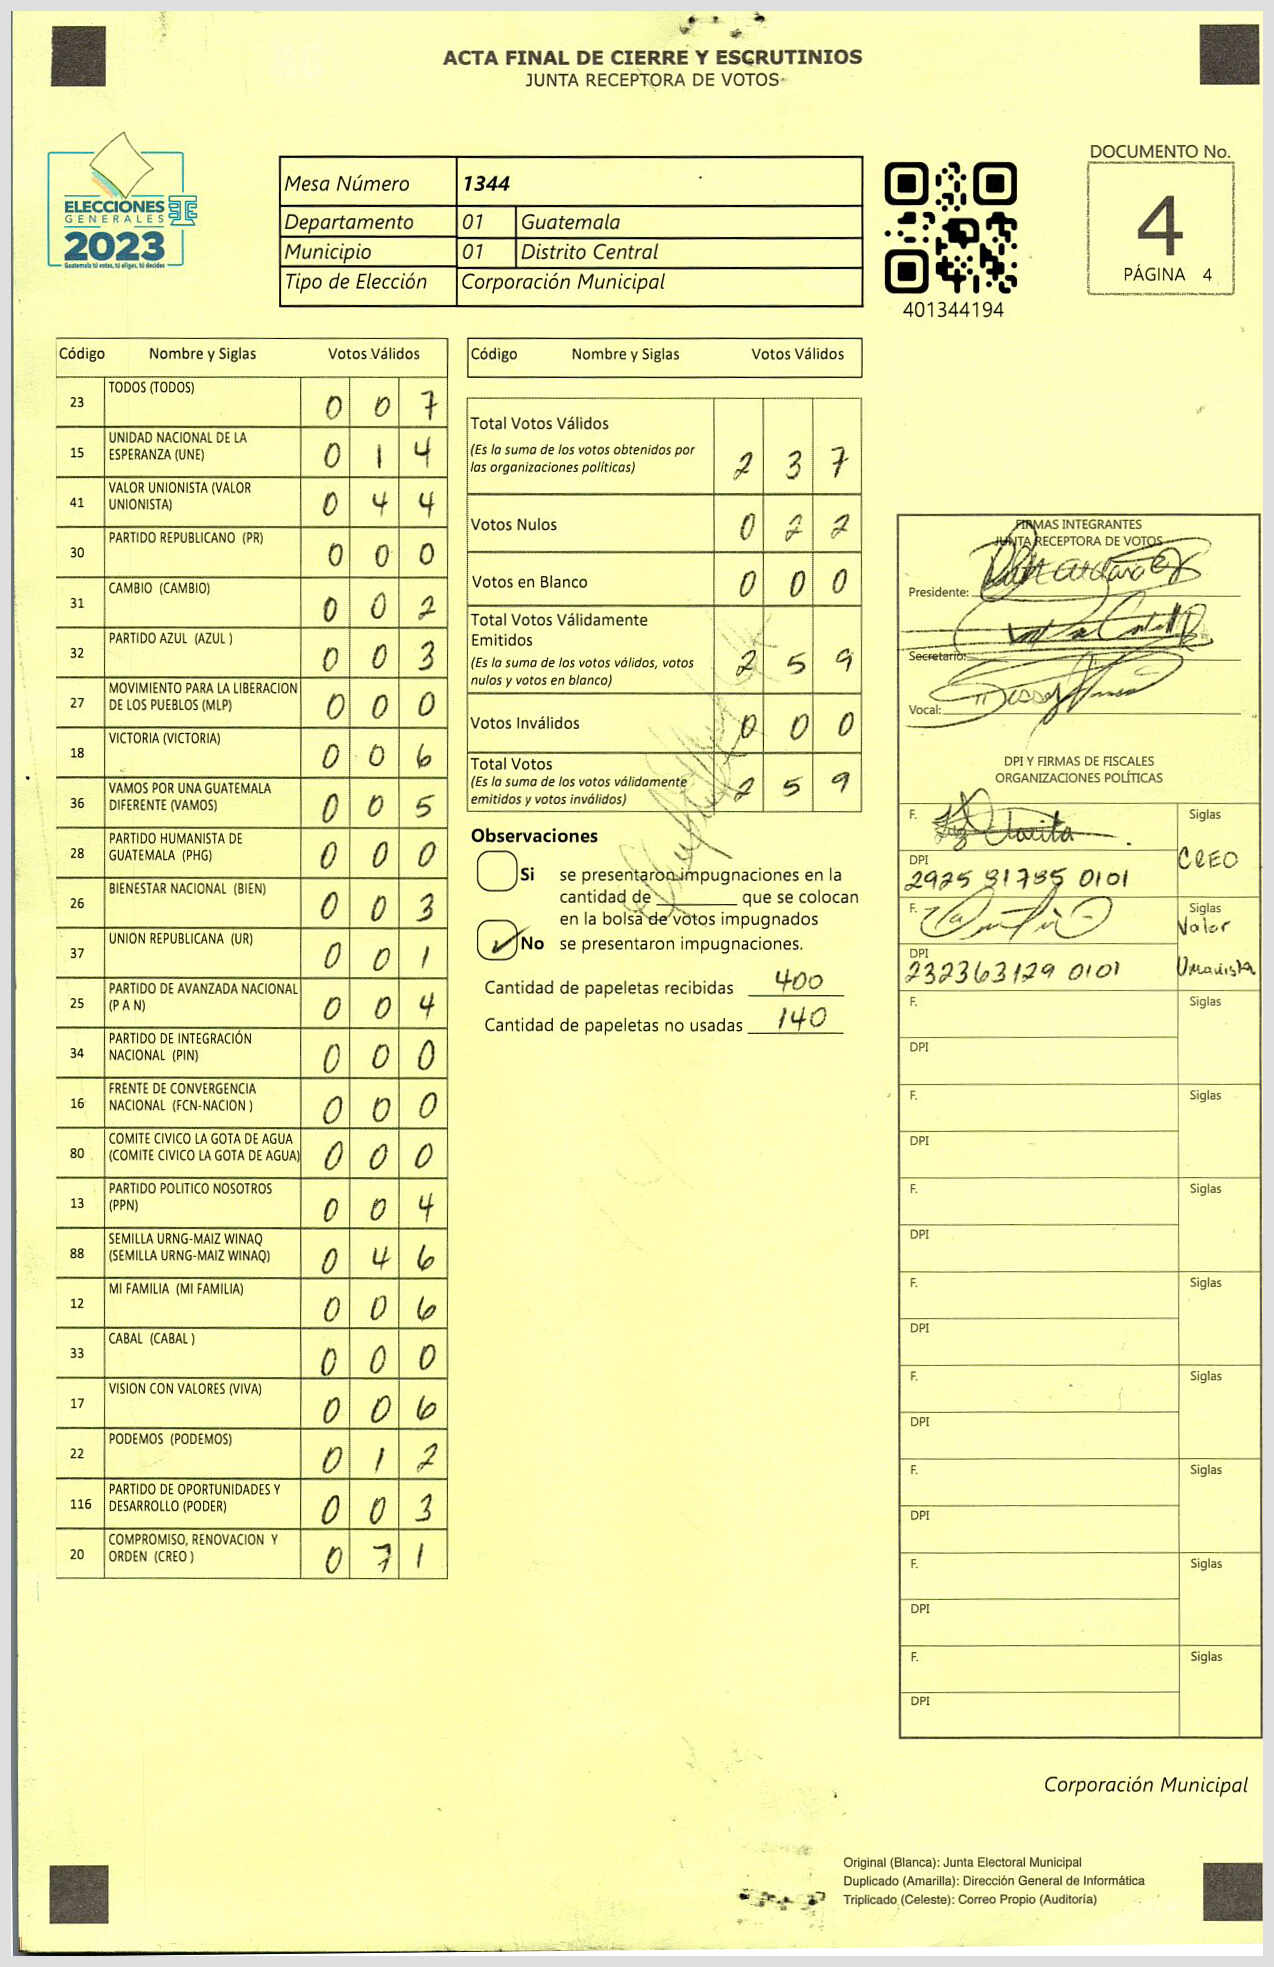 ACTA FINAL DE CIERRE Y ESCRUTINIOS
JUNTA RECEPTORA DE VOTOS
ELECCIONES
GENERALES
2023
Guatemala tú votas, tú eliges, tú decides
Mesa Número 1344
Departamento 01 Guatemala
Municipio 01 Distrito Central
Tipo de Elección Corporación Municipal
401344194
DOCUMENTO No.
4
PÁGINA 4
Código Nombre y Siglas Votos Válidos
23 TODOS (TODOS) 0 0 7
15 UNIDAD NACIONAL DE LA
ESPERANZA (UNE) 0 1 4
41 VALOR UNIONISTA (VALOR
UNIONISTA) 0 4 4
30 PARTIDO REPUBLICANO (PR) 0 0 0
31 CAMBIO (CAMBIO) 0 0 2
32 PARTIDO AZUL (AZUL ) 0 0 3
27 MOVIMIENTO PARA LA LIBERACION
DE LOS PUEBLOS (MLP) 0 0 0
18 VICTORIA (VICTORIA) 0 0 6
36 VAMOS POR UNA GUATEMALA
DIFERENTE (VAMOS) 0 0 5
28 PARTIDO HUMANISTA DE
GUATEMALA (PHG) 0 0 0
26 BIENESTAR NACIONAL (BIEN) 0 0 3
37 UNION REPUBLICANA (UR) 0 0 1
25 PARTIDO DE AVANZADA NACIONAL
(P A N) 0 0 4
34 PARTIDO DE INTEGRACIÓN
NACIONAL (PIN) 0 0 0
16 FRENTE DE CONVERGENCIA
NACIONAL (FCN-NACION ) 0 0 0
80 COMITE CIVICO LA GOTA DE AGUA
(COMITE CIVICO LA GOTA DE AGUA) 0 0 0
13 PARTIDO POLITICO NOSOTROS
(PPN) 0 0 4
88 SEMILLA URNG-MAIZ WINAQ
(SEMILLA URNG-MAIZ WINAQ) 0 4 6
12 MI FAMILIA (MI FAMILIA) 0 0 6
33 CABAL (CABAL ) 0 0 0
17 VISION CON VALORES (VIVA) 0 0 6
22 PODEMOS (PODEMOS) 0 1 2
116 PARTIDO DE OPORTUNIDADES Y
DESARROLLO (PODER) 0 0 3
20 COMPROMISO, RENOVACION Y
ORDEN (CREO ) 0 7 1
Código Nombre y Siglas Votos Válidos
Total Votos Válidos
(Es la suma de los votos obtenidos por
las organizaciones políticas) 2 3 7
Votos Nulos 0 2 2
Votos en Blanco 0 0 0
Total Votos Válidamente
Emitidos
(Es la suma de los votos válidos, votos
nulos y votos en blanco) 2 5 9
Votos Inválidos 0 0 0
Total Votos
(Es la suma de los votos válidamente
emitidos y votos inválidos) 2 5 9
Observaciones
Si se presentaron impugnaciones en la
cantidad de ________ que se colocan
en la bolsa de votos impugnados
No se presentaron impugnaciones.
Cantidad de papeletas recibidas 400
Cantidad de papeletas no usadas 140
FIRMAS INTEGRANTES
JUNTA RECEPTORA DE VOTOS
Presidente:
Secretario:
Vocal:
DPI Y FIRMAS DE FISCALES
ORGANIZACIONES POLÍTICAS
F. Siglas
CREO
DPI
2925 81785 0101
F. Siglas
Valor
DPI
232363129 0101 Unionista
F. Siglas
DPI
F. Siglas
DPI
F. Siglas
DPI
F. Siglas
DPI
F. Siglas
DPI
F. Siglas
DPI
F. Siglas
DPI
F. Siglas
DPI
Corporación Municipal
Original (Blanca): Junta Electoral Municipal
Duplicado (Amarilla): Dirección General de Informática
Triplicado (Celeste): Correo Propio (Auditoría)